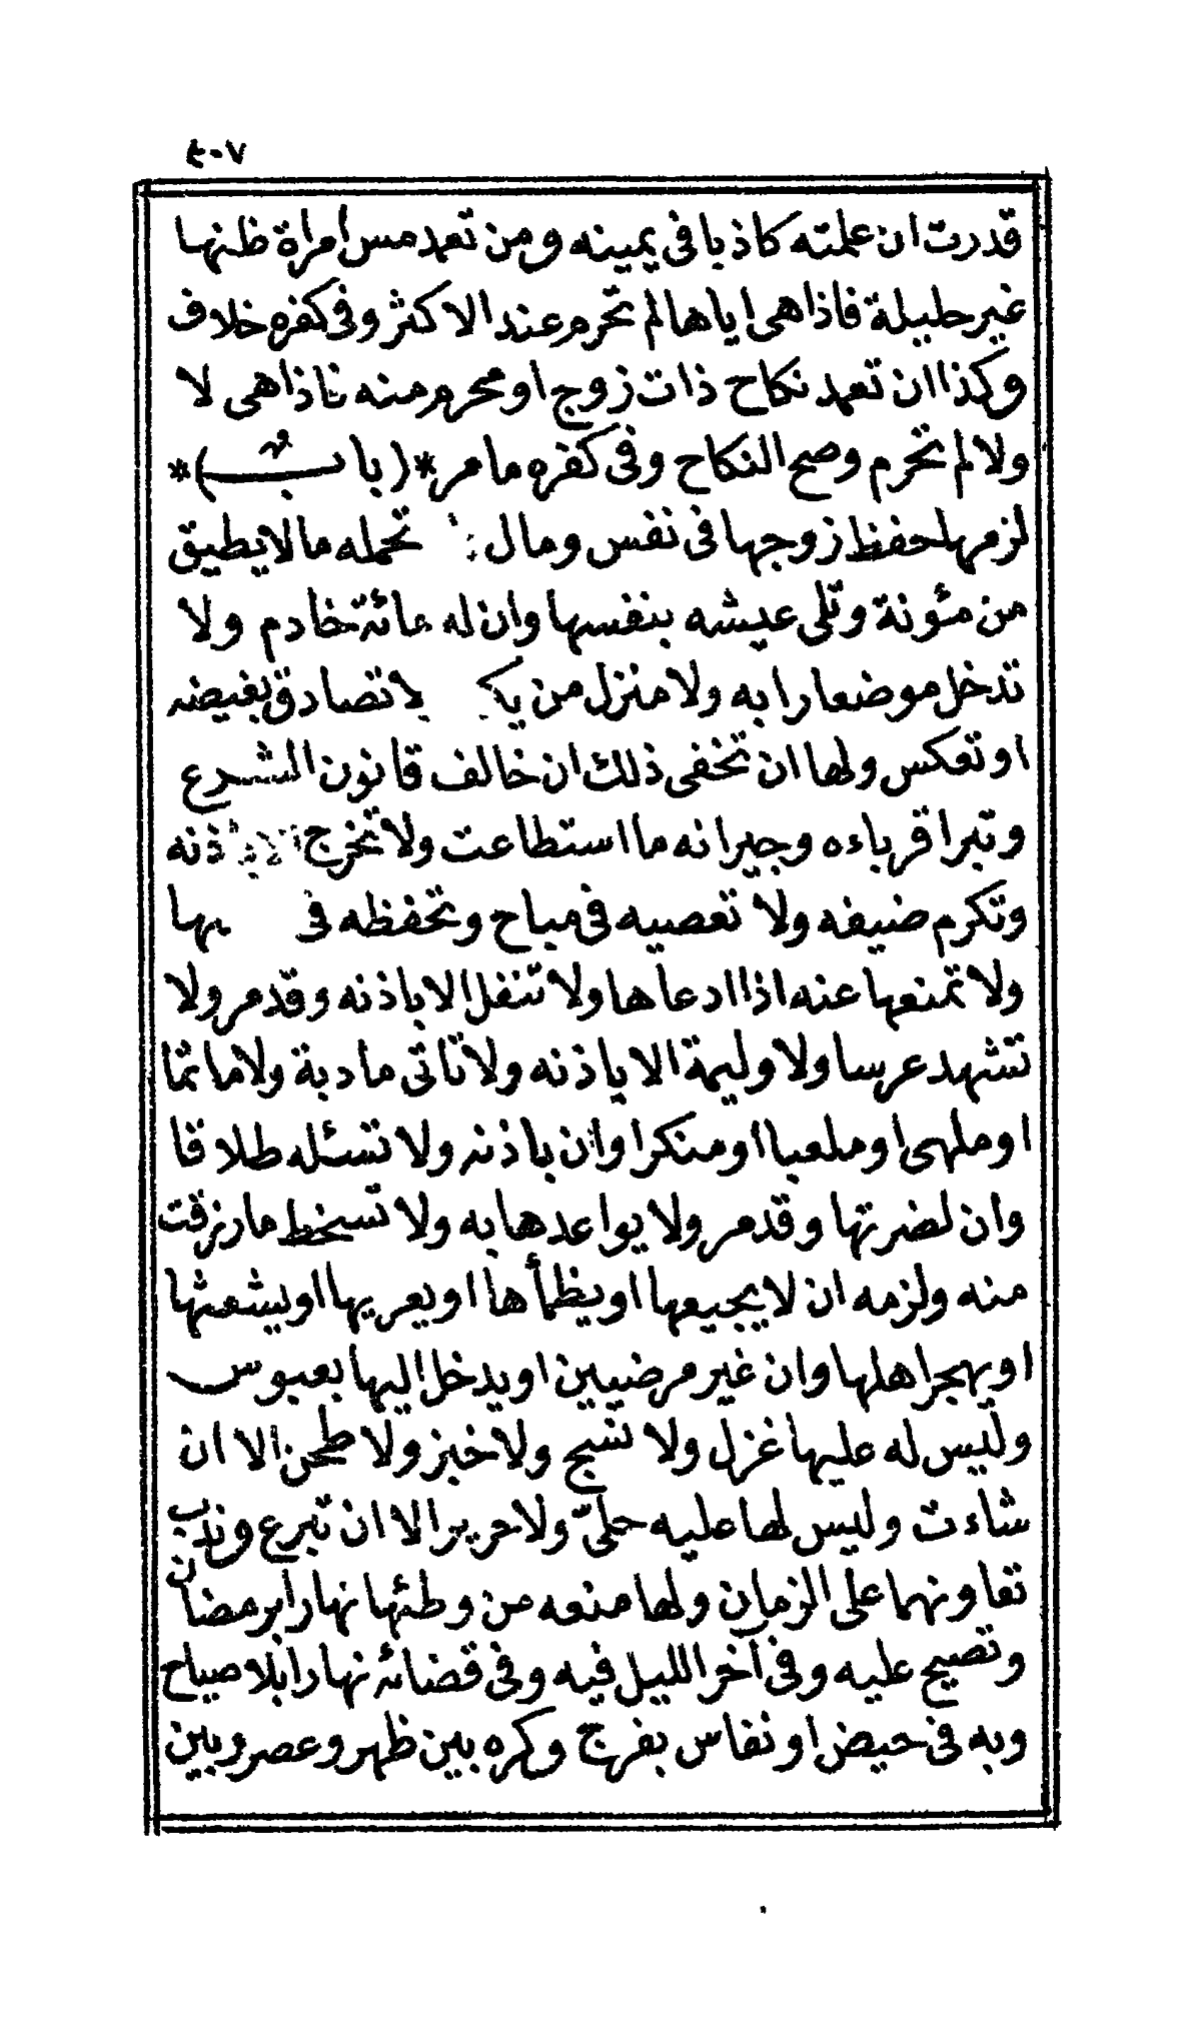 ٤٠٧
قدرت ان علمته كاذبا فى يمينه ومن تعمد مس امراة ظنها
غير حليلة فاذا هى اياها لم تحرم عند الاكثر وفى كفره خلاف
وكذا ان تعمد نكاح ذات زوج او محرم منه فاذا هى لا
ولا لم تحرم وصح النكاح وفى كفره ما مر *(باب)*
لزمها حفظ زوجها فى نفس ومال تحمله مالا يطيق
من مئونة وتلى عيشه بنفسها وان له مائة خادم ولا
تدخل موضعا رابه ولا منزل من لا تصادق بغيضه
او تعكس ولها ان تخفى ذلك ان خالف قانون الشرع
وتبر اقرباءه وجيرانه ما استطاعت ولا تخرج الا باذنه
وتكرم ضيفه ولا تعصيه فى مباح وتحفظه فى
ولا تمنعها عنه اذا ادعاها ولا تتنفل الا باذنه وقد مر ولا
تشهد عرسا ولا وليمة الا باذنه ولا تاتى مادبة ولا ماتما
او ملهى او ملعبا او منكرا وان باذنه ولا تسئله طلاقا
وان لضرتها وقد مر ولا يواعدها به ولا تسخط ما رزقت
منه ولزمه ان لا يجيعها او يظمأها او يعريها او يشعثها
او يهجر اهلها وان غير مرضيين او يدخل اليها بعبوس
وليس له عليها غزل ولا نسج ولا خبز ولا طحن الا ان
شاءت وليس لها عليه حلىّ ولا حرير الا ان تبرع وندب
تعاونهما على الزمان ولها منعه من وطئها نهارا برمضان
وتصيح عليه وفى آخر الليل فيه وفى قضائه نهارا بلا صياح
وبه فى حيض او نفاس بفرج وكره بين ظهر وعصر وبين